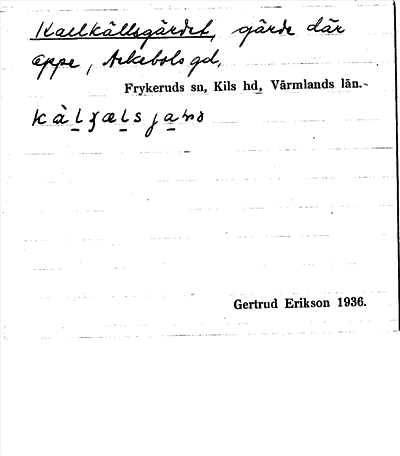 Kallkällsgärdet, gärde där
uppe, Arkebols gd,
Frykeruds sn, Kils hd, Värmlands län.-
Gertrud Erikson 1936.